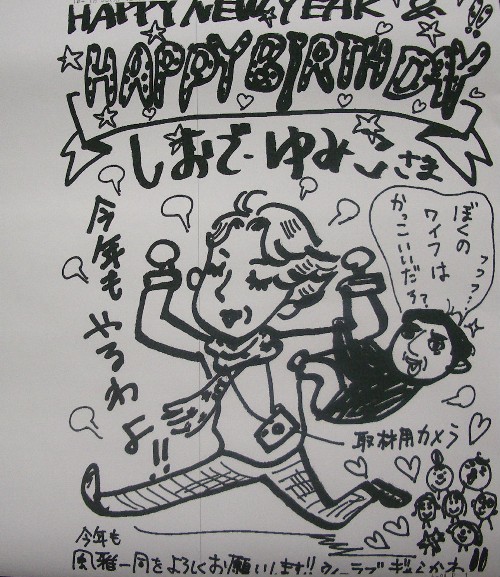 HAPPY NEW YEAR &
HAPPY BIRTH DAY!!
しおで・ゆみこさま
今年も やるわよ!!
ぼくの
ワイフは
かっこいいだろ?
フッフッ…
取材用カメラ
今年も
風雅一同をよろしくお願いします!!